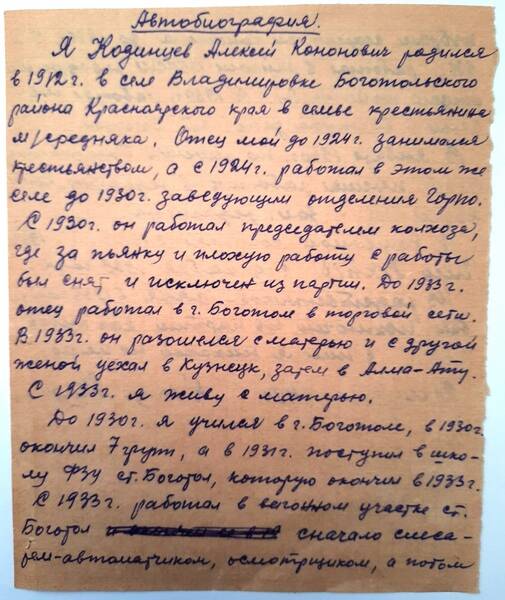 Автобиография.
Я Кодинцев Алексей Кононович родился
в 1912г. в селе Владимировке Боготольского
района Красноярского края в семье крестьянина
м/средняка. Отец мой до 1924г. занимался
крестьянством, а с 1924г. работал в этом же
селе до 1930г. заведующим отделения Горпо.
С 1930г. он работал председателем колхоза,
где за пьянку и плохую работу с работы
был снят и исключен из партии. До 1933г.
отец работал в г. Боготоле в торговой сети.
В 1933г. он разошелся с матерью и с другой
женой уехал в Кузнецк, затем в Алма-Ату.
С 1933г. я живу с матерью.
До 1930г. я учился в г. Боготоле, в 1930г.
окончил 7 групп, а в 1931г. поступил в шко-
лу ФЗУ ст. Боготол, которую окончил в 1933г.
С 1933г. работал в вагонном участке ст.
Боготол сначало слеса-
рем-автоматчиком, осмотрщиком, а потом